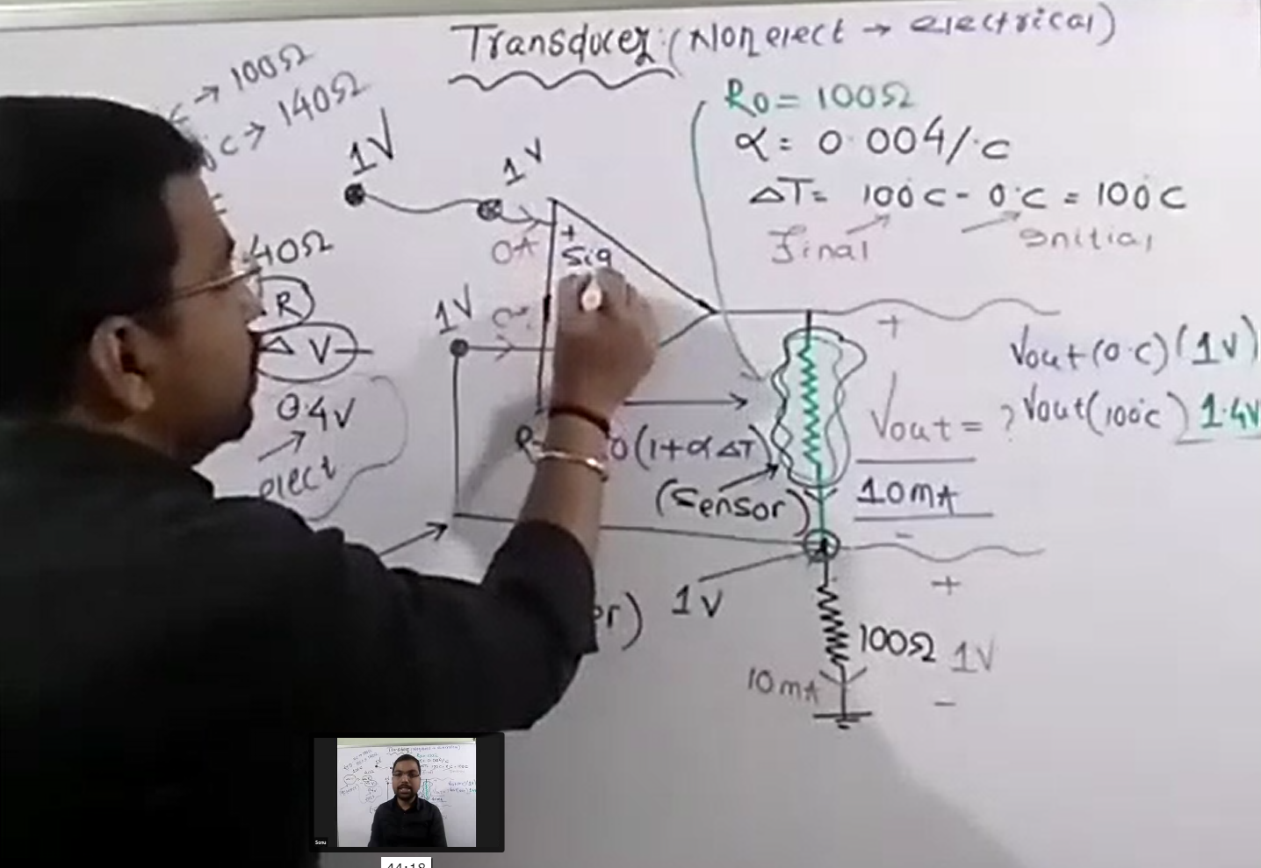 Transducer: (Non elect → electrical)
→ 100Ω
c → 140Ω
R0 = 100Ω
α = 0.004/°C
ΔT = 100°C - 0°C = 100°C
Final
Initial
1V
1V
0A
+
Sig
40Ω
R
Δ V
0.4V
elect
1V
+
Vout = ?
10mA
-
Vout (0°C) (1V)
Vout (100°C) 1.4V
0(1+αΔT)
(Sensor)
1V
+
100Ω
1V
10mA
-
44:18